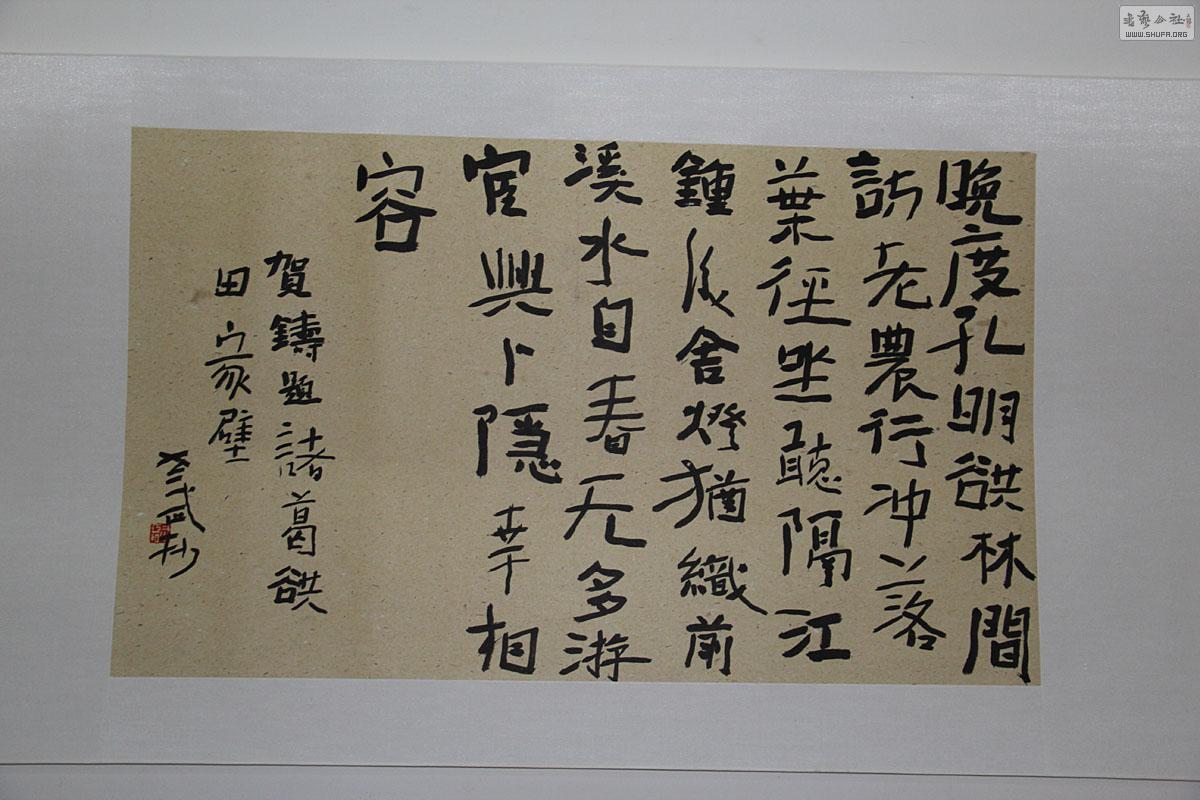 晚度孔明谼林間
訪老農行沖落
葉徑坐聽隔江
鍾後舍燈猶織前
溪水自舂无多游
宦興卜隱幸相
容
賀鑄題諸葛谼
田家壁
武抄
書藝公社
WWW.SHUFA.ORG